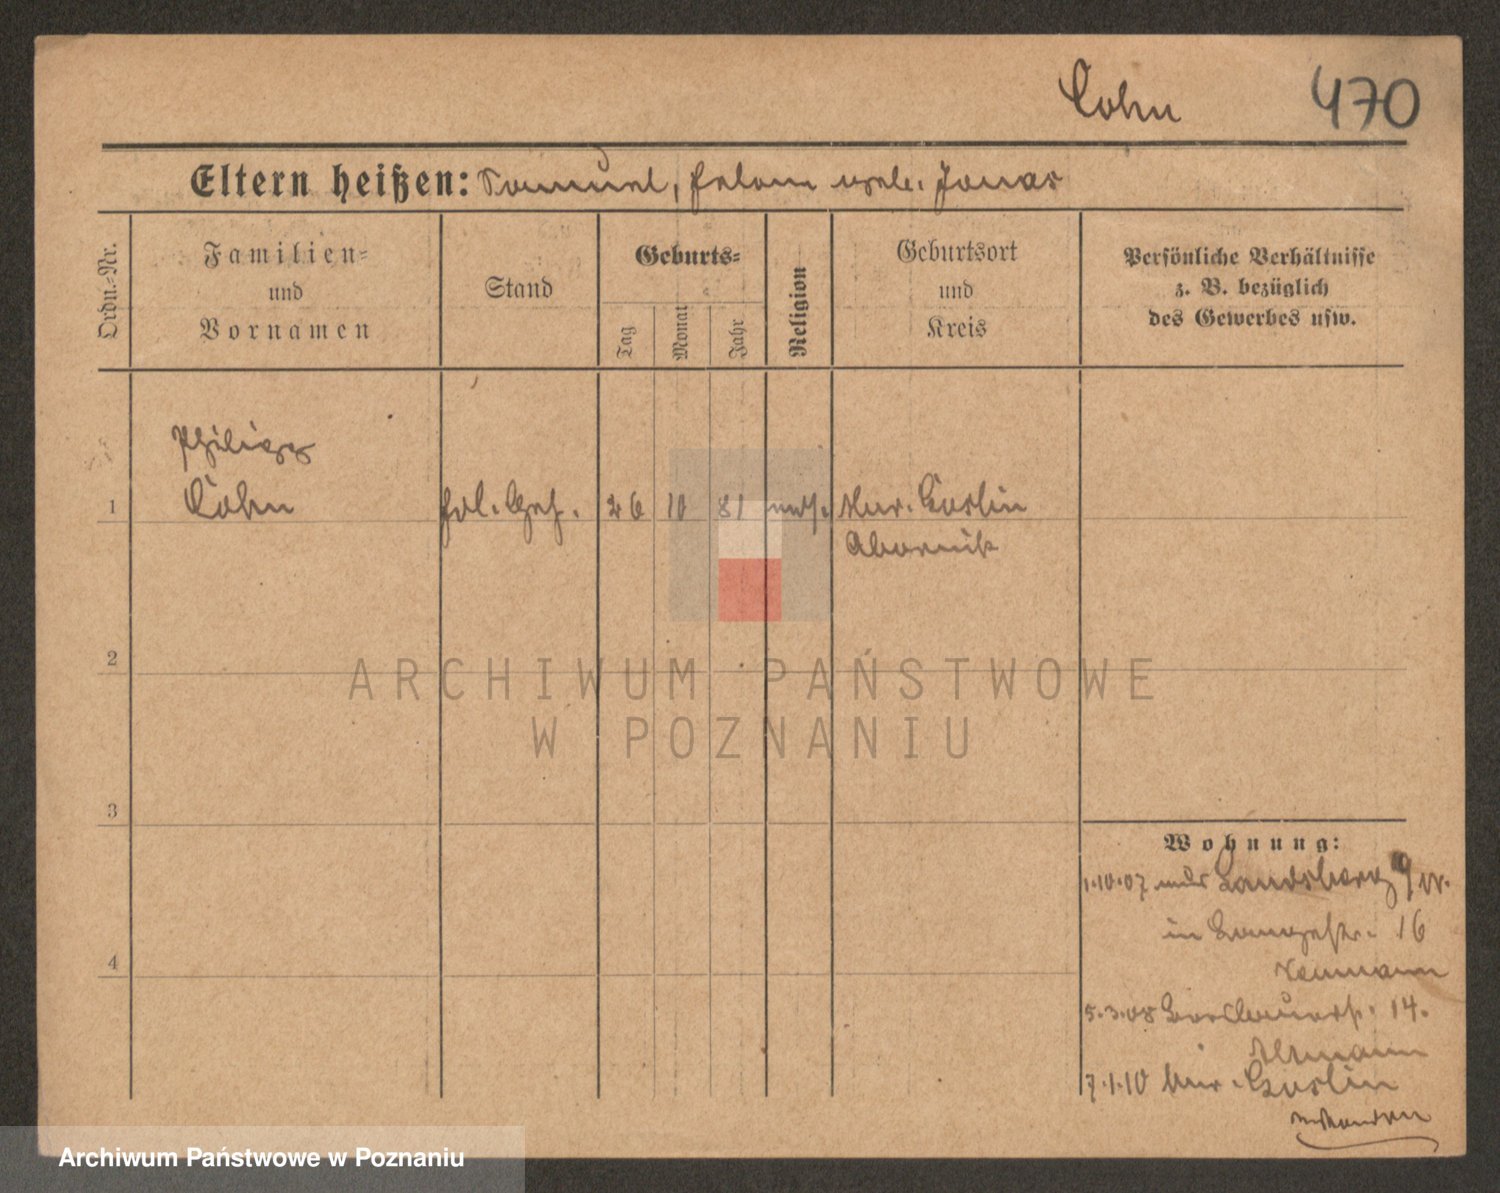 Cohn 470
Eltern heißen: Samuel, Helene geb. Jonas
Ordn.-Nr.
Familien-
und
Vornamen
Stand
Geburts-
Tag
Monat
Jahr
Religion
Geburtsort
und
Kreis
Persönliche Verhältnisse
z. B. bezüglich
des Gewerbes usw.
Philipp
1 Cohn 26 10 81 mos. Mur. Goslin
Obornik
2
3
4
Wohnung:
1.10.07 aus Landsberg a/W.
in Langestr. 16
Neumann
5.3.08 14.
7.1.10 Mur. Goslin
ARCHIWUM PAŃSTWOWE
W POZNANIU
Archiwum Państwowe w Poznaniu